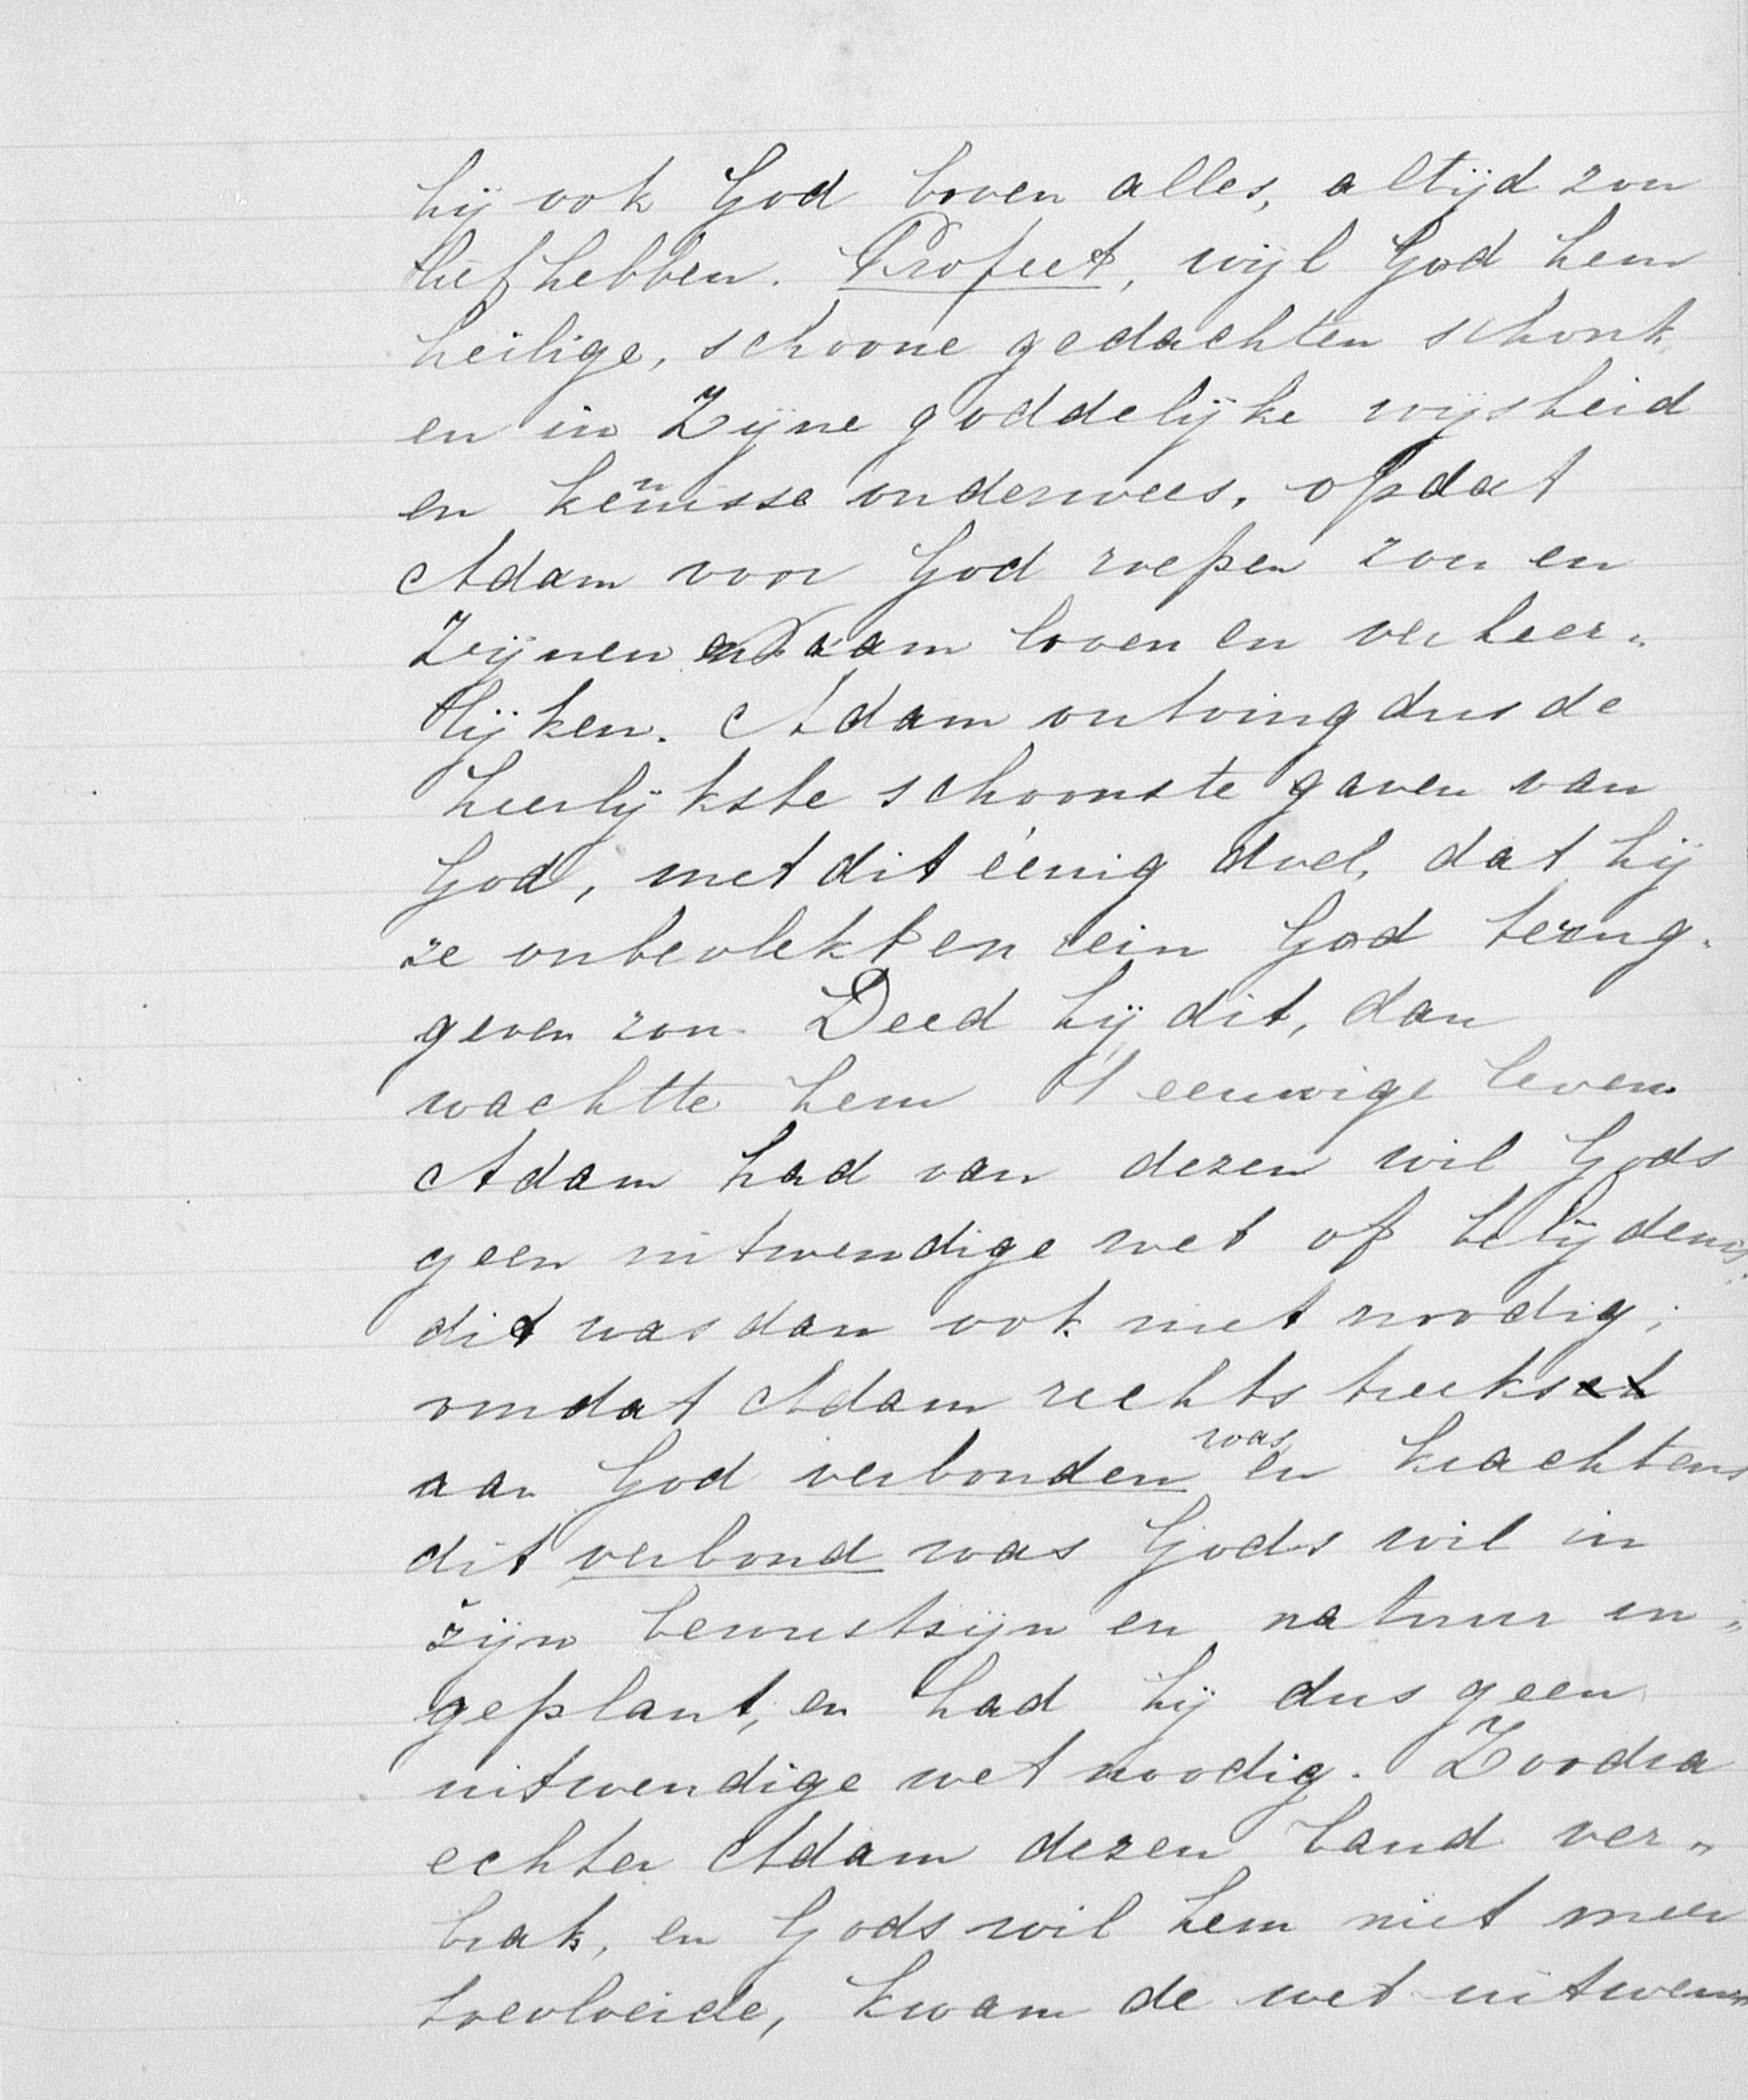 hij ook God boven alles, altijd zou
liefhebben. Profeet, wijl God hem
heilige, schoone gedachten schonk
en in Zijne goddelijke wijsheid
en kennisse onderwees, opdat
Adam voor God roepen zou en
Zijnen Naam loven en verheer„
lijken. Adam ontving dus de
heerlijkste schoonste gaven van
God, met dit éénig doel, dat hij
ze onbevlekt en rein God terug„
geven zou. Deed hij dit, dan
wachtte hem 't eeuwige leven.
Adam had van dezen wil Gods
geen uitwendige wet of belijdenis;
dit was dan ook niet noodig;
omdat Adam rechtstreeks
aan God verbonden was en krachtens
dit verbond was Gods wil in
zijn bewustzijn en natuur in„
geplant, en had hij dus geen
uitwendige wet noodig. Zoodra
echter Adam dezen band ver„
brak, en Gods wil hem niet meer
toevloeide, kwam de wet uitwen„